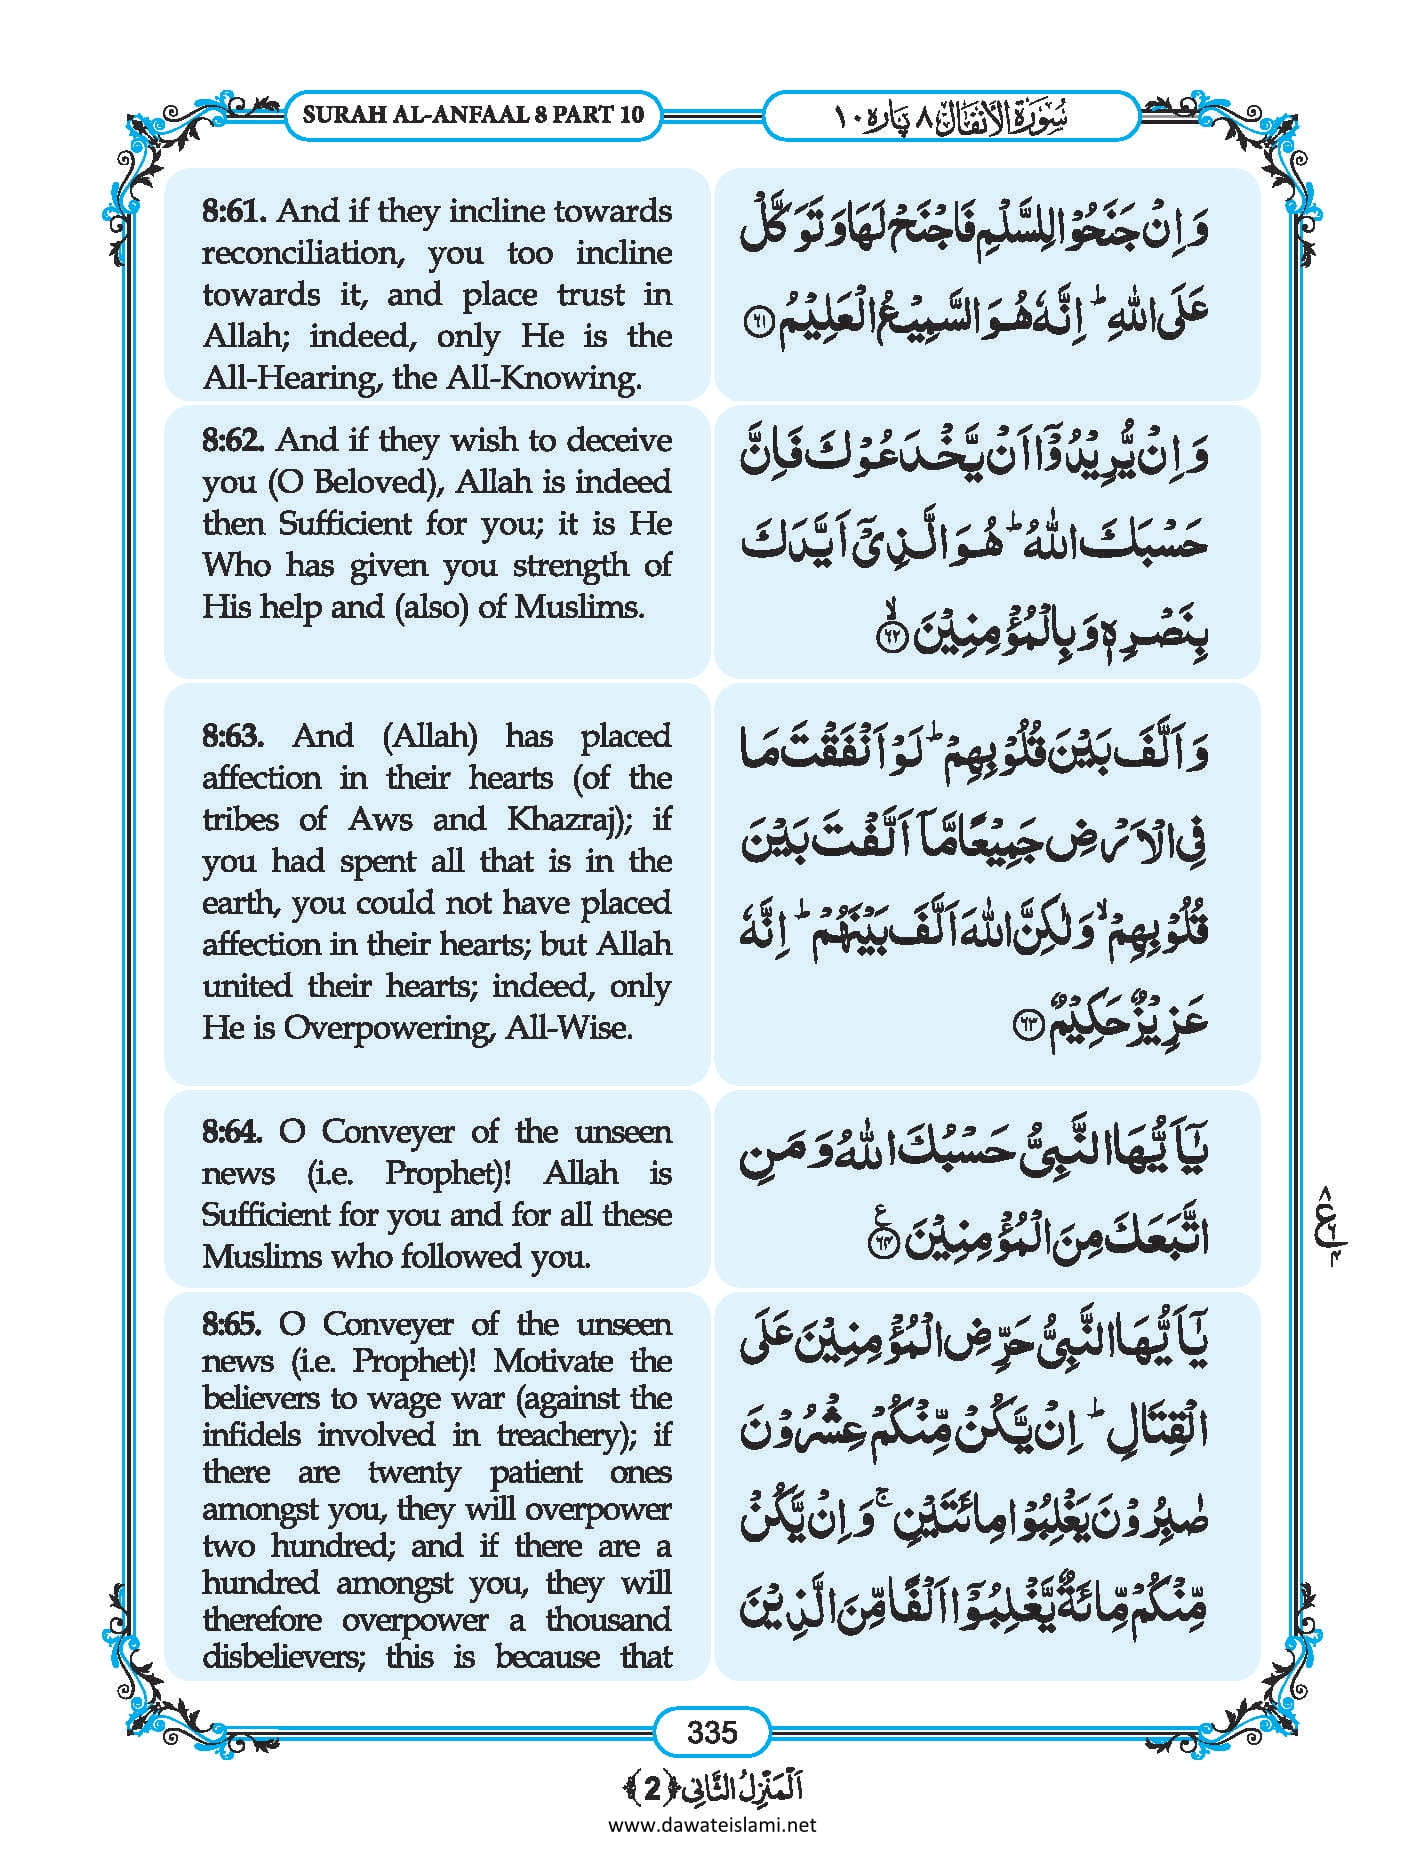 SURAH AL-ANFAAL 8 PART 10
سُوۡرَۃُ الۡاَنۡفَال ٨ پارہ ١٠
8:61. And if they incline towards
reconciliation, you too incline
towards it, and place trust in
Allah; indeed, only He is the
All-Hearing, the All-Knowing.
وَ اِنۡ جَنَحُوۡا لِلسَّلۡمِ فَاجۡنَحۡ لَهَا وَ تَوَكَّلۡ
عَلَی اللّٰهِ ؕ اِنَّهٗ هُوَ السَّمِیۡعُ الۡعَلِیۡمُ ﴿٦١﴾
8:62. And if they wish to deceive
you (O Beloved), Allah is indeed
then Sufficient for you; it is He
Who has given you strength of
His help and (also) of Muslims.
وَ اِنۡ یُّرِیۡدُوۡۤا اَنۡ یَّخۡدَعُوۡكَ فَاِنَّ
حَسۡبَكَ اللّٰهُ ؕ هُوَ الَّذِیۡۤ اَیَّدَكَ
بِنَصۡرِهٖ وَ بِالۡمُؤۡمِنِیۡنَ ﴿ۙ٦٢﴾
8:63. And (Allah) has placed
affection in their hearts (of the
tribes of Aws and Khazraj); if
you had spent all that is in the
earth, you could not have placed
affection in their hearts; but Allah
united their hearts; indeed, only
He is Overpowering, All-Wise.
وَ اَلَّفَ بَیۡنَ قُلُوۡبِهِمۡ ؕ لَوۡ اَنۡفَقۡتَ مَا
فِی الۡاَرۡضِ جَمِیۡعًا مَّاۤ اَلَّفۡتَ بَیۡنَ
قُلُوۡبِهِمۡ ۙ وَلٰكِنَّ اللّٰهَ اَلَّفَ بَیۡنَهُمۡ ؕ اِنَّهٗ
عَزِیۡزٌ حَكِیۡمٌ ﴿٦٣﴾
8:64. O Conveyer of the unseen
news (i.e. Prophet)! Allah is
Sufficient for you and for all these
Muslims who followed you.
یٰۤاَیُّهَا النَّبِیُّ حَسۡبُكَ اللّٰهُ وَ مَنِ
اتَّبَعَكَ مِنَ الۡمُؤۡمِنِیۡنَ ﴿٦٤﴾ ع
٨
ع
٤
8:65. O Conveyer of the unseen
news (i.e. Prophet)! Motivate the
believers to wage war (against the
infidels involved in treachery); if
there are twenty patient ones
amongst you, they will overpower
two hundred; and if there are a
hundred amongst you, they will
therefore overpower a thousand
disbelievers; this is because that
یٰۤاَیُّهَا النَّبِیُّ حَرِّضِ الۡمُؤۡمِنِیۡنَ عَلَی
الۡقِتَالِ ؕ اِنۡ یَّكُنۡ مِّنۡكُمۡ عِشۡرُوۡنَ
صٰبِرُوۡنَ یَغۡلِبُوۡا مِائَتَیۡنِ ۚ وَ اِنۡ یَّكُنۡ
مِّنۡكُمۡ مِّائَةٌ یَّغۡلِبُوۡۤا اَلۡفًا مِّنَ الَّذِیۡنَ
335
اَلۡمَنۡزِلُ الثَّانِی ﴿2﴾
www.dawateislami.net